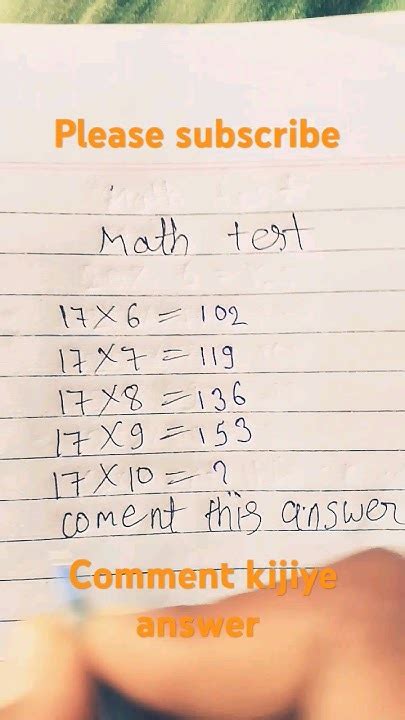 Please subscribe
Math test
17×6=102
17×7=119
17×8=136
17×9=153
17×10=?
coment this answer
Comment kijiye
answer